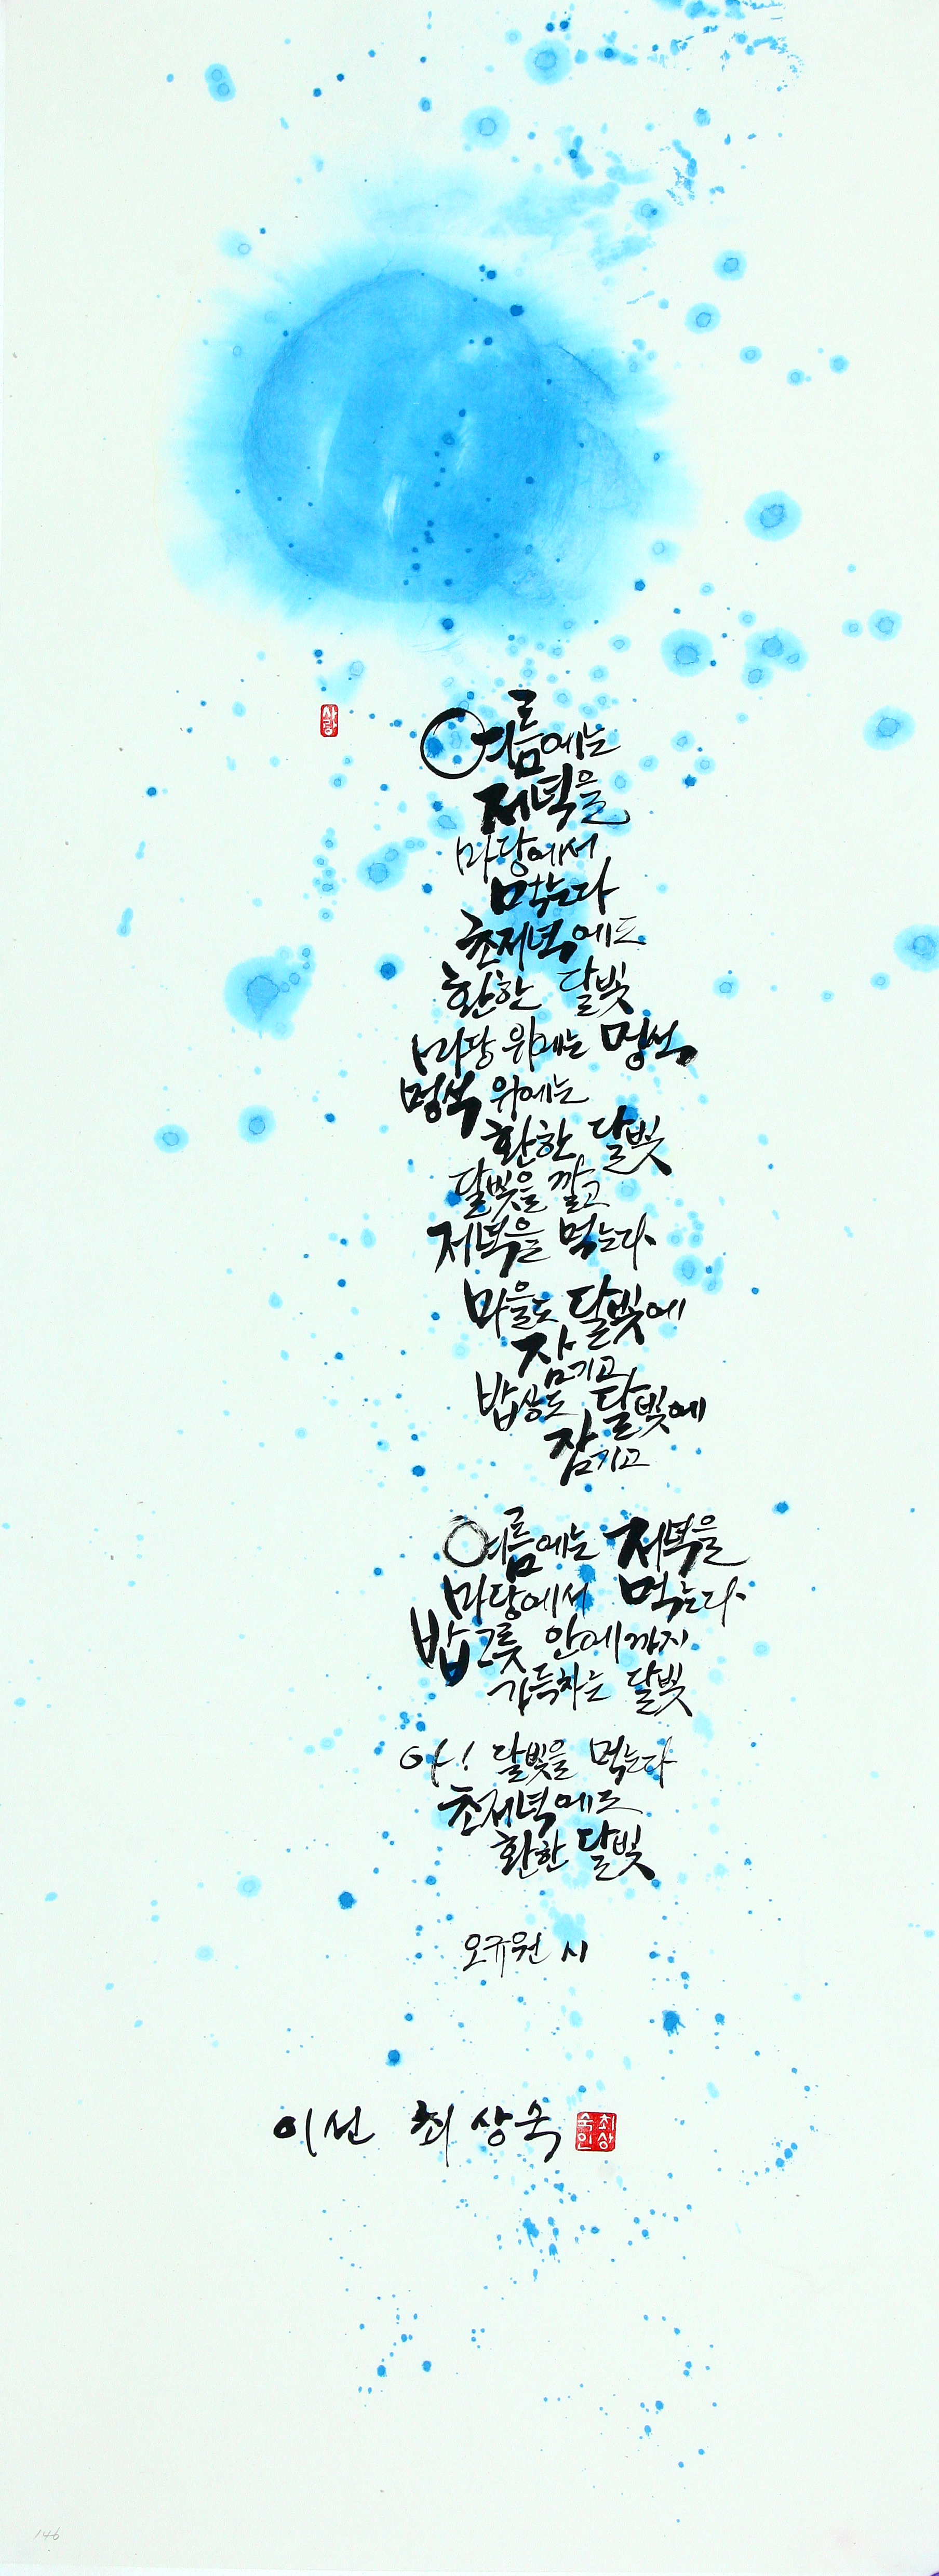 사랑
여름에는
저녁을
마당에서
먹는다
초저녁에도
환한 달빛
마당 위에는 멍석
멍석 위에는
환한 달빛
달빛을 깔고
저녁을 먹는다
마을도 달빛에
잠기고
밥상도 달빛에
잠기고
여름에는 저녁을
마당에서 먹는다
밥그릇 안에까지
가득차는 달빛
아! 달빛을 먹는다
초저녁에도
환한 달빛
오규원 시
이선 최상숙
최상숙인
146